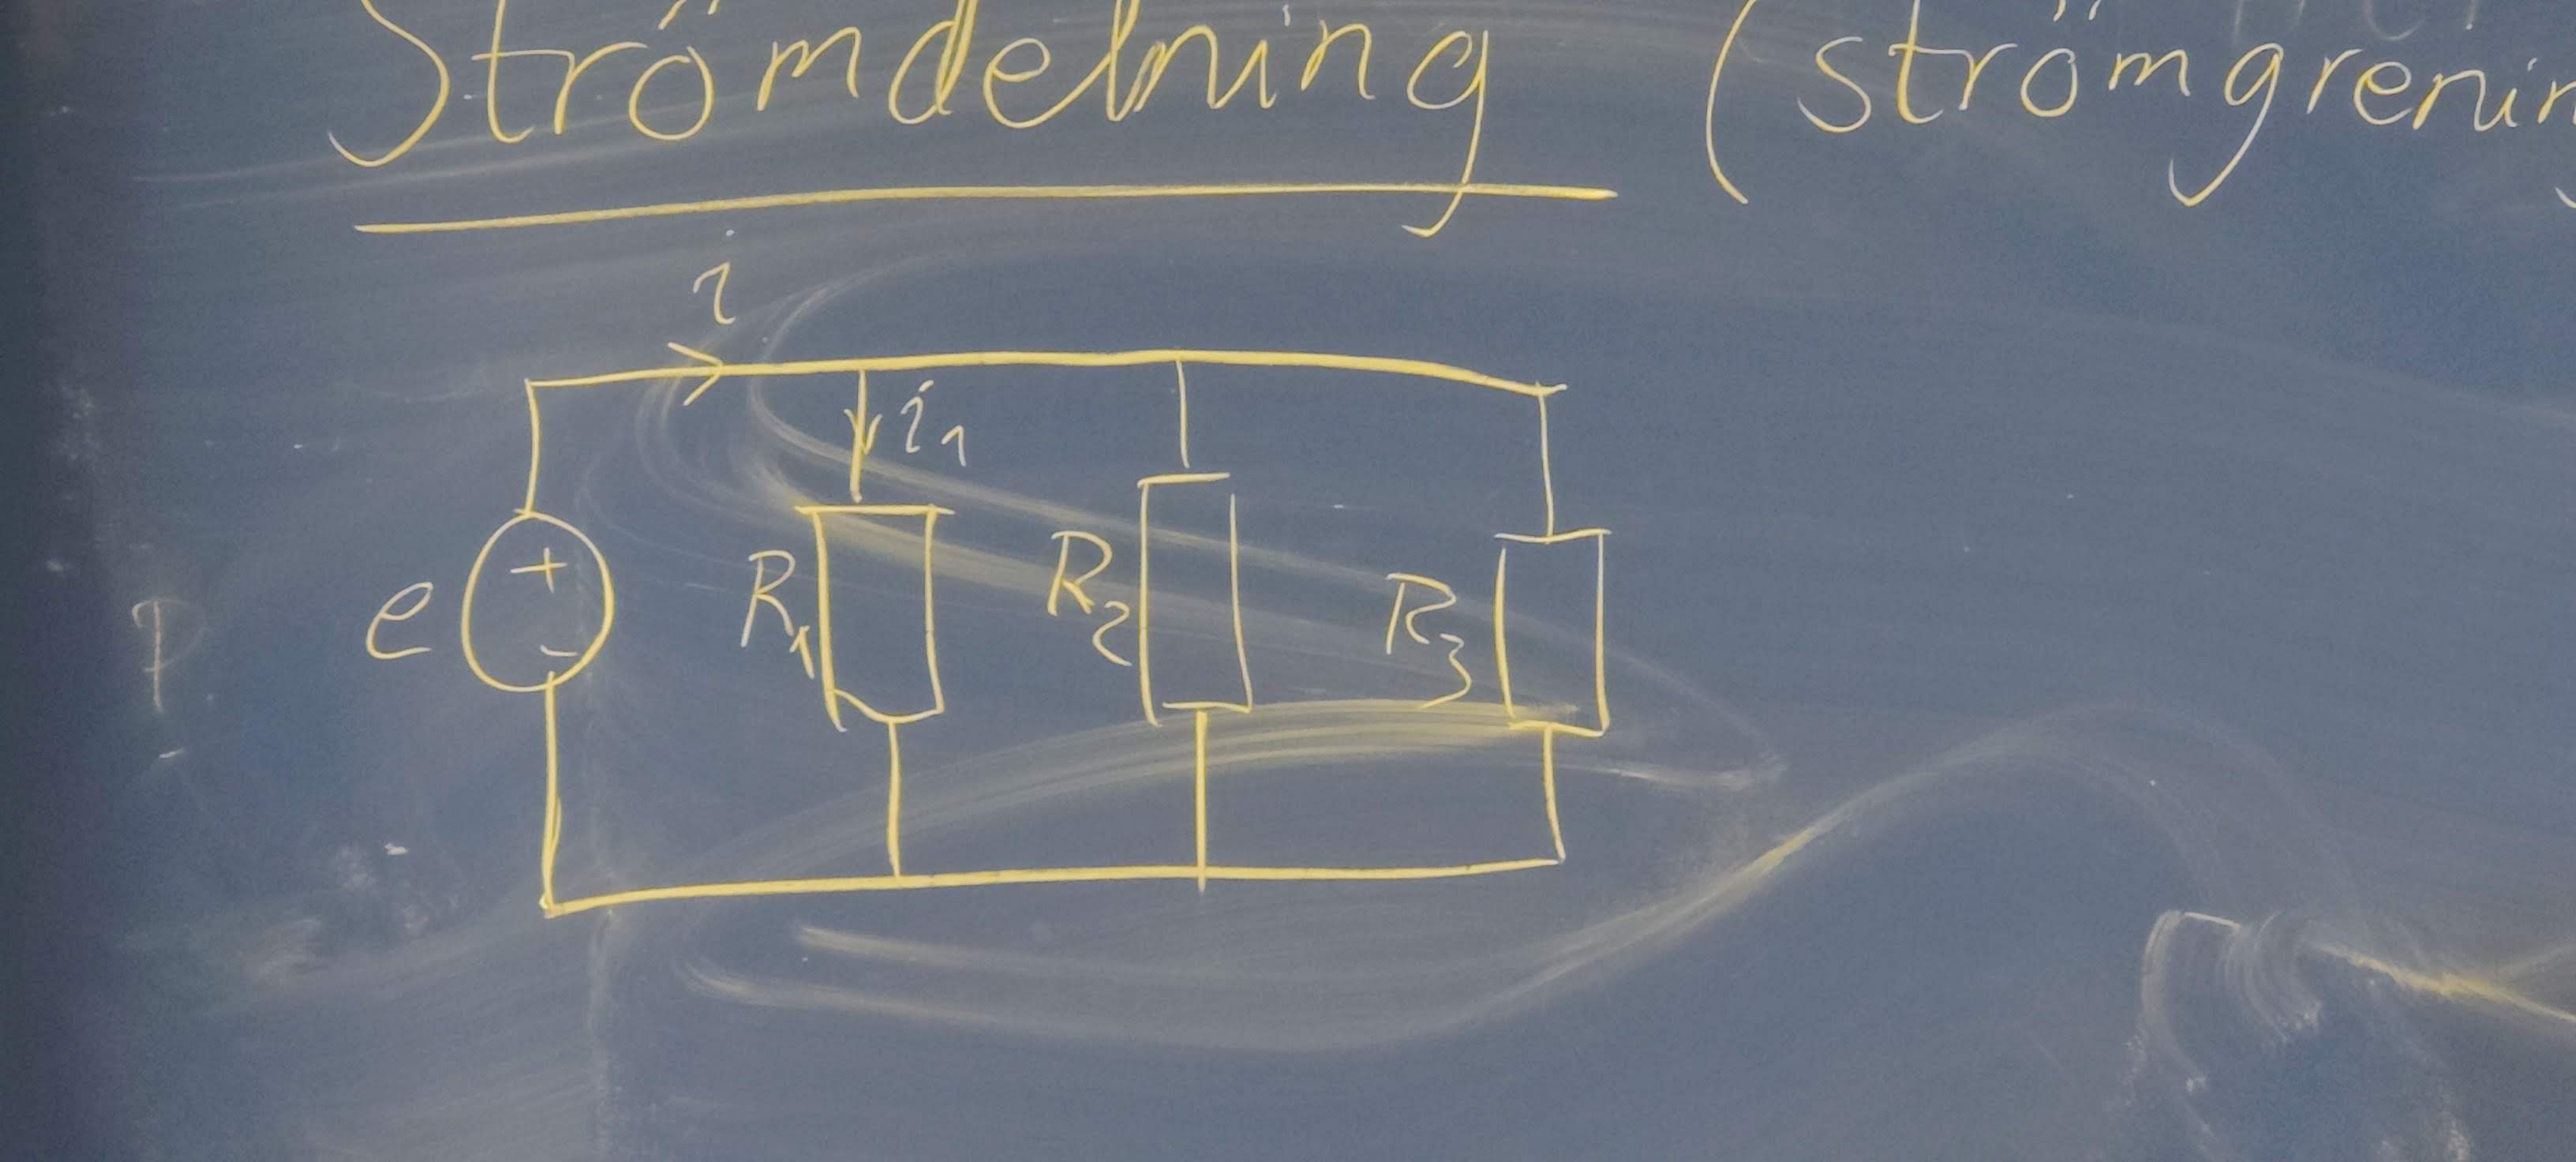 Strömdelning (strömgrenin
i
i1
+
e R1 R2 R3
-
P